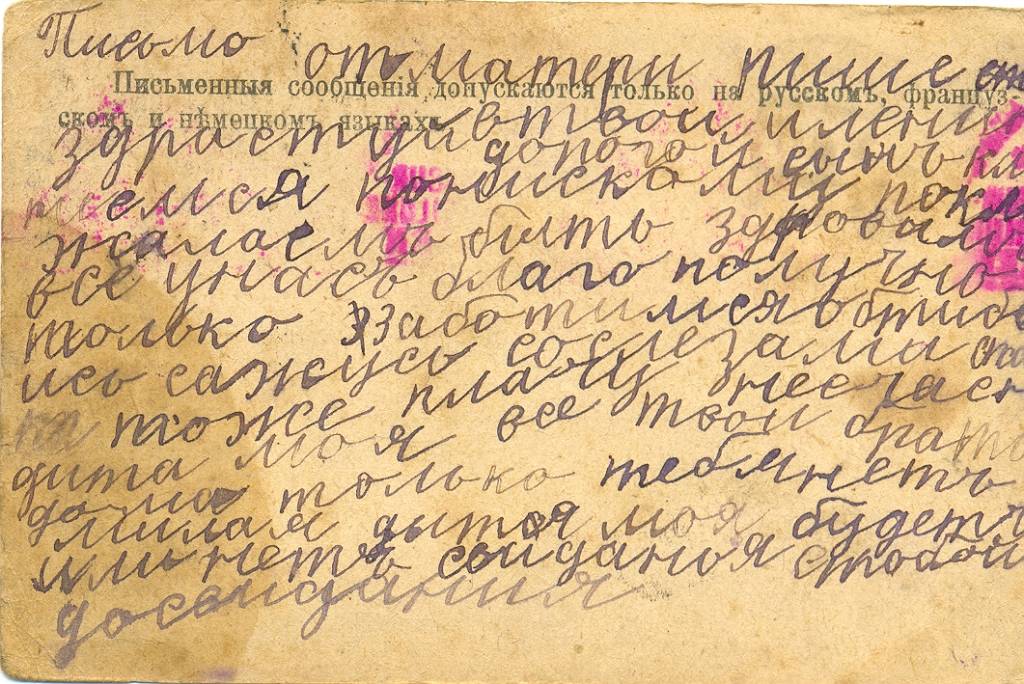 Письмо от матери пише
Письменныя сообщенія допускаются только на русскомъ, француз-
скомъ и нѣмецкомъ языкахъ.
здраствуй
дорогой сынъ
емся
жалаемъ быть здоровымъ
все унасъ благо получно
только заботимся обтибе
ись сажусь сослезама
тоже плачу несчасн
дита моя все твои брат
дома только тебя нетъ
милая дытоя моя будетъ
или нетъ свиданоя стобой
досвидания